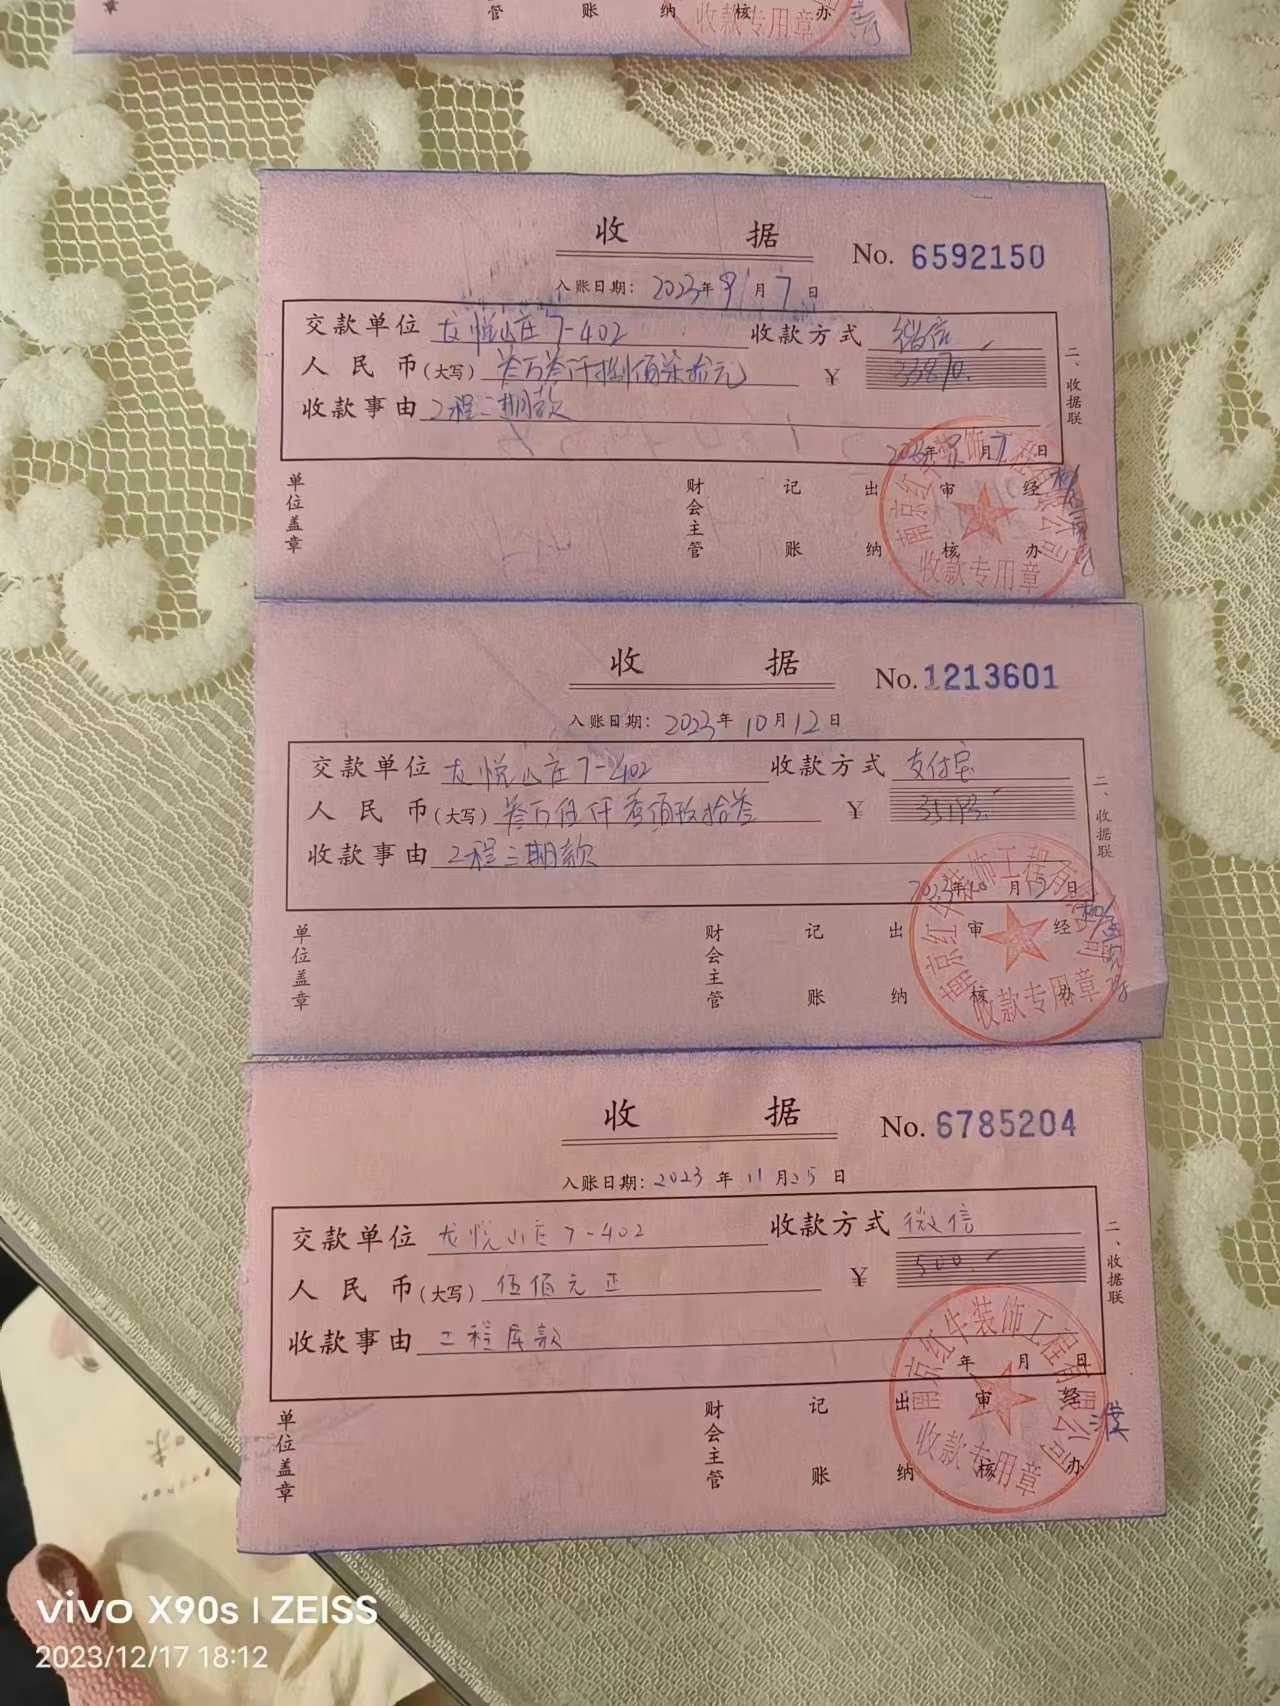 章 管 账 纳 核 办
收款专用章
收 据 No. 6592150
入账日期: 2023年9月7日
交款单位 龙悦山庄7-402 收款方式 微信
人民币(大写) 叁万叁仟捌佰柒拾元 ¥ 33870.
收款事由 工程二期款
二、收据联
2023年9月7日
单位盖章 财会主管 记账 出纳 审核 经办
南京红牛装饰工程有限公司
收款专用章
收 据 No. 1213601
入账日期: 2023年10月12日
交款单位 龙悦山庄7-402 收款方式 支付宝
人民币(大写) 叁万伍仟壹佰玖拾叁 ¥ 35193.
收款事由 工程三期款
二、收据联
2023年10月12日
单位盖章 财会主管 记账 出纳 审核 经办
南京红牛装饰工程有限公司
收款专用章
收 据 No. 6785204
入账日期: 2023年11月25日
交款单位 龙悦山庄7-402 收款方式 微信
人民币(大写) 伍佰元正 ¥ 500.
收款事由 工程尾款
二、收据联
年 月 日
单位盖章 财会主管 记账 出纳 审核 经办
南京红牛装饰工程有限公司
收款专用章
vivo X90s | ZEISS
2023/12/17 18:12